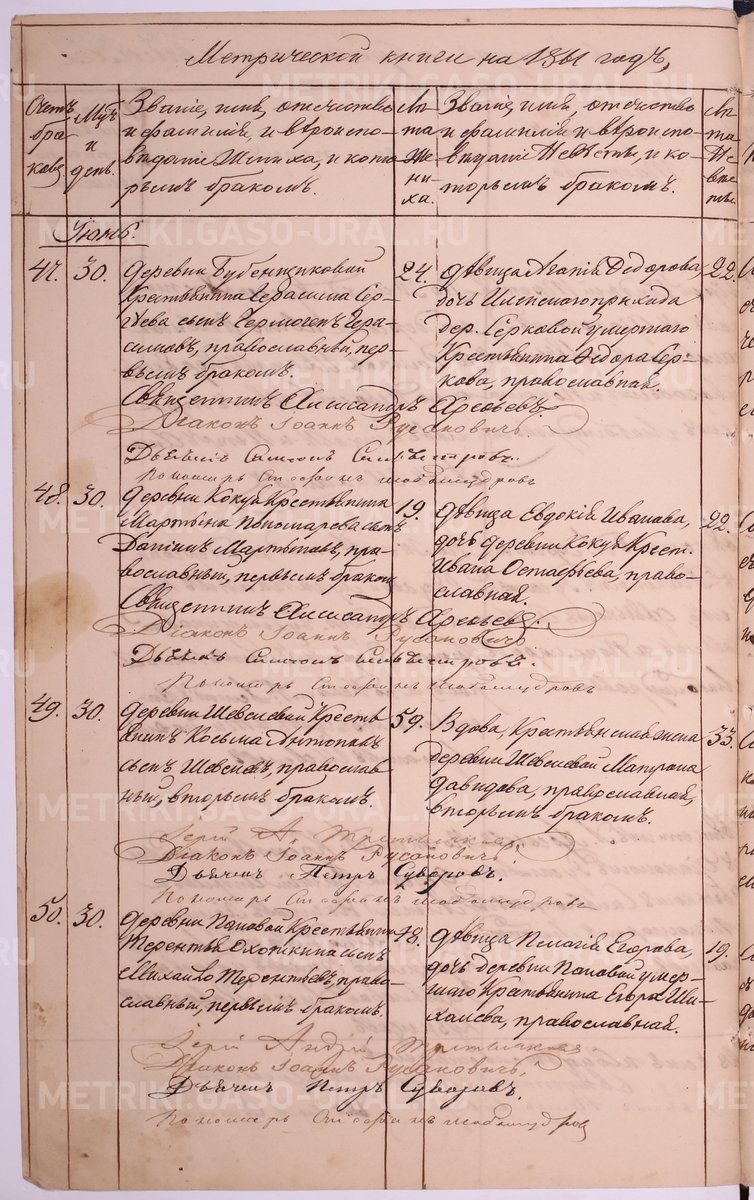 Метрической книги на 1861 годъ,
Счетъ браковъ
Мцъ и день.
Званіе, имя, отчество и фамилія, и вѣроисповѣданіе Жениха, и которымъ бракомъ.
Лѣта Жениха.
Званіе, имя, отчество и фамилія и вѣроисповѣданіе Невѣсты, и которымъ бракомъ.
Лѣта Невѣсты.
Іюнь.
47. 30.
деревни Бубенщиковой
Крестьянина Герасима Сер-
гѣева сынъ Гермогенъ Гера-
симовъ, православный, пер-
вымъ бракомъ.
24.
дѣвица Агапія Ѳедорова,
дочь прихода
дер. Серковой умершаго
Крестьянина Ѳедора Сер-
кова, православная.
22.
Священникъ Александръ Арефьевъ.
Діаконъ Іоаннъ Русановичъ.
Дьячекъ Симеонъ Сильвестровъ.
Пономарь Стефанъ Любомудровъ
48. 30.
деревни Кокуя Крестьянина
Мартына Пономарева сынъ
Даніилъ Мартыновъ, пра-
вославный, первымъ бракомъ
19.
дѣвица Евдокія Иванова,
дочь деревни Кокуя Крест.
Ивана Остафьева, право-
славная.
22.
Священникъ Александръ Арефьевъ.
Діаконъ Іоаннъ Русановичъ
Дьячекъ Симеонъ Сильвестровъ.
Пономарь Стефанъ Любомудровъ
49. 30.
деревни Шевелевой Кресть
янинъ Косьма Антоновъ
сынъ Шевелевъ, православ-
ный, вторымъ бракомъ.
59.
Вдова, Крестьянская жена
деревни Шевелевой Матрона
Давидова, православная,
вторымъ бракомъ.
33.
Іерей А.
Діаконъ Іоаннъ Русановичъ.
Дьячекъ Петръ Суворовъ.
Пономарь Стефанъ Любомудровъ
50. 30.
деревни Пановой Крестьянина
Терентья Охоткина сынъ
Михайло Терентьевъ, право-
славный, первымъ бракомъ.
18.
дѣвица Пелагія Егорова,
дочь деревни Пановой умер-
шаго Крестьянина Егора Ми-
халева, православная.
19.
Іерей Андрей
Діаконъ Іоаннъ Русановичъ.
Дьячекъ Петръ Суворовъ.
Пономарь Стефанъ Любомудровъ
METRIKI.GASO-URAL.RU